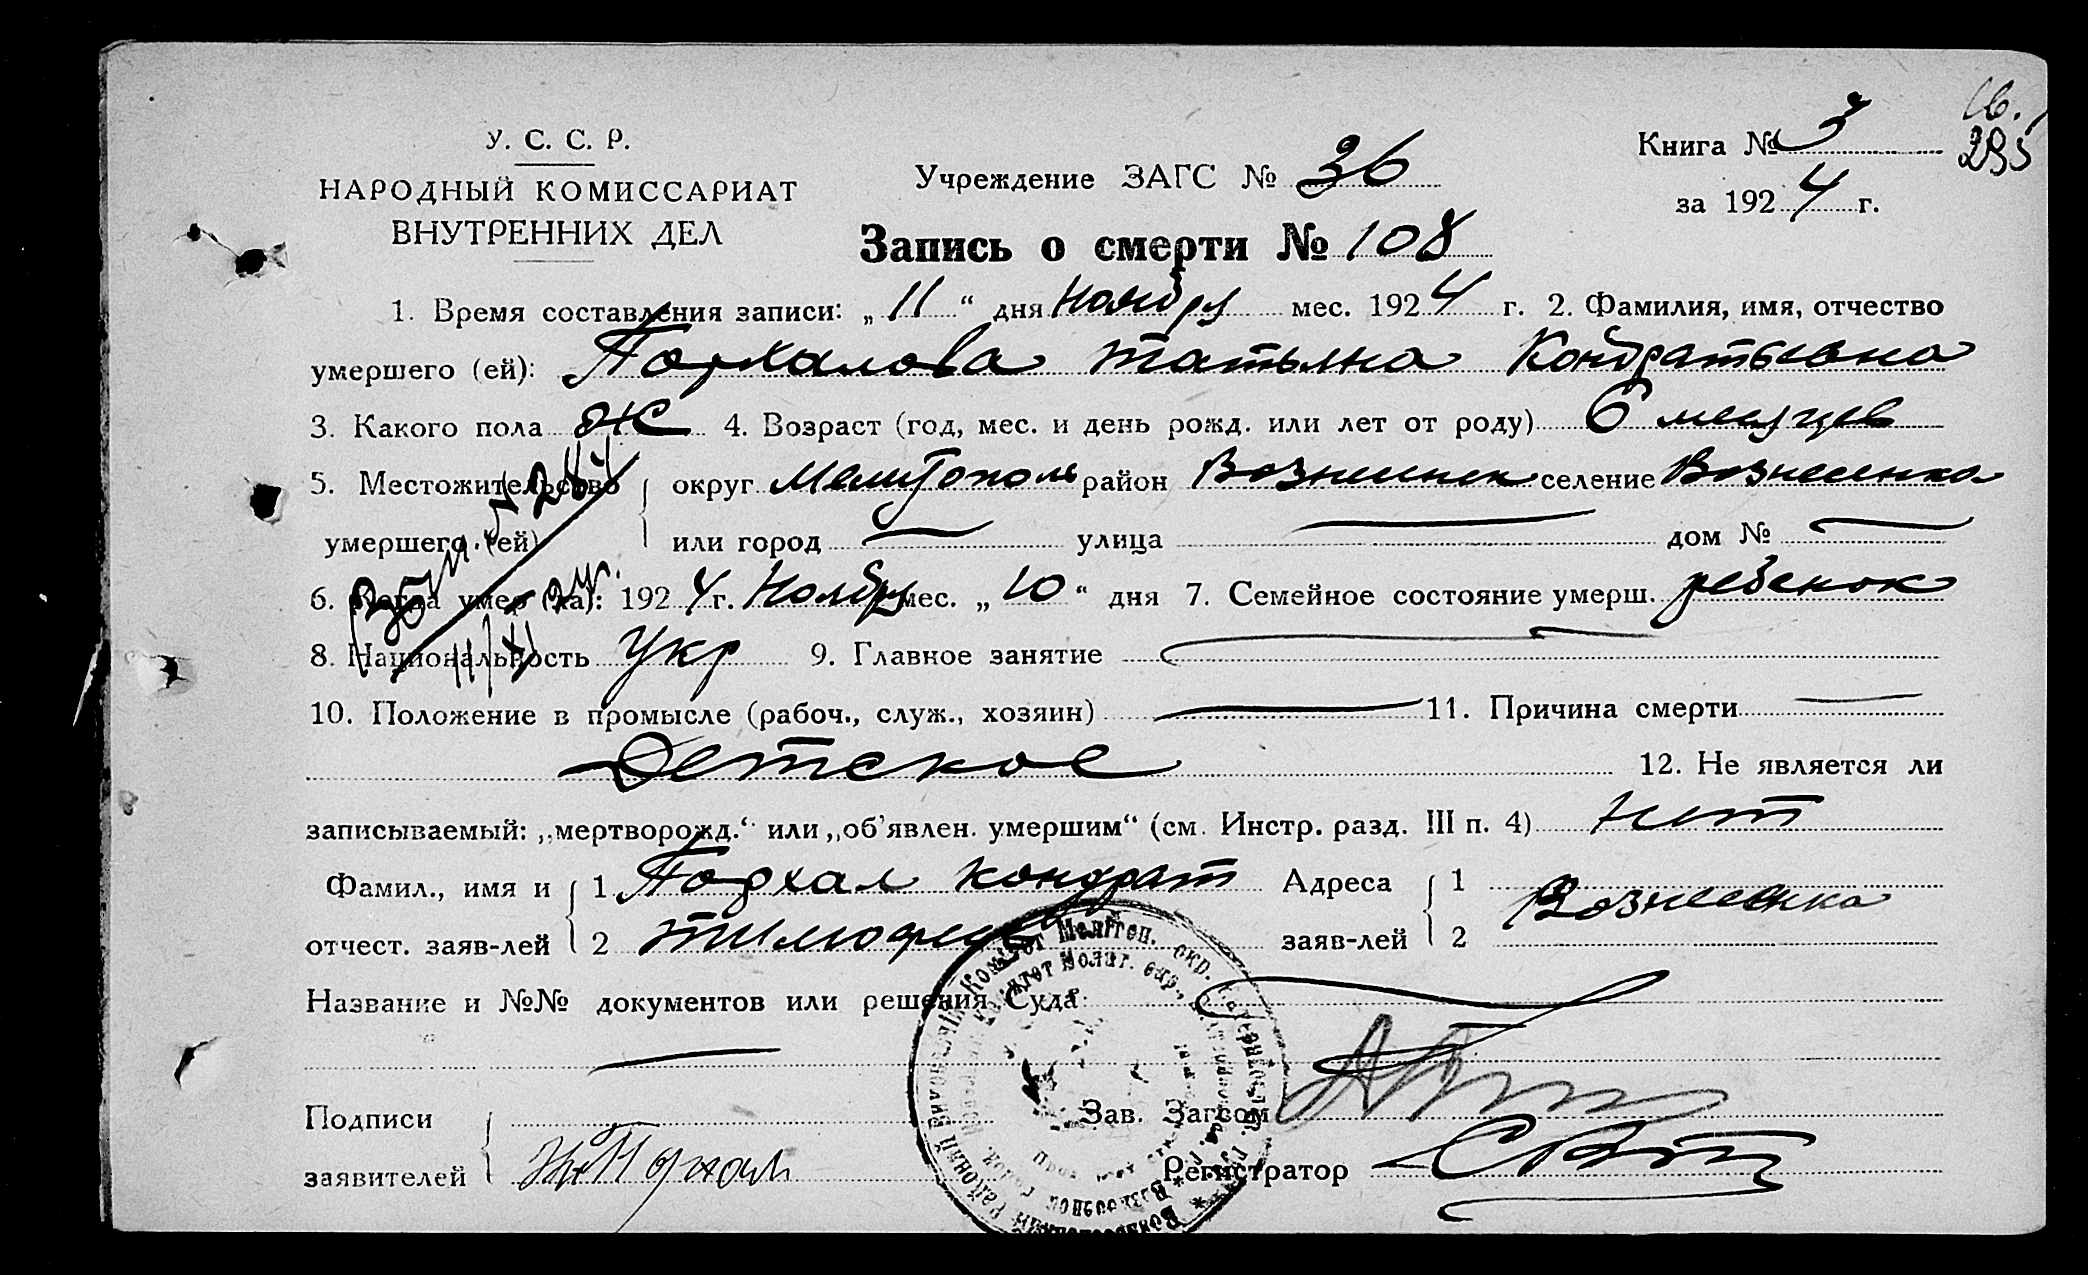 16.
295
У. С. С. Р.
НАРОДНЫЙ КОМИССАРИАТ
ВНУТРЕННИХ ДЕЛ
Учреждение ЗАГС № 36
Книга № 3
за 1924 г.
Запись о смерти № 108
1. Время составления записи: „11“ дня Ноября мес. 1924 г. 2. Фамилия, имя, отчество
умершего (ей): Подхалова Татьяна Кондратьевна
3. Какого пола Ж 4. Возраст (год, мес. и день рожд. или лет от роду) 6 месяцев
5. Местожительство округ Мелитополь район Вознесенск селение Вознесенка
умершего (ей) или город — улица — дом № —
6. Когда умер (ла): 1924 г. Ноября мес. „10“ дня 7. Семейное состояние умерш. ребенок
8. Национальность Укр 9. Главное занятие —
10. Положение в промысле (рабоч., служ., хозяин) — 11. Причина смерти —
Детское 12. Не является ли
записываемый: „мертворожд.“ или „об'явлен. умершим“ (см. Инстр. разд. III п. 4) нет
Фамил., имя и 1 Подхал Кондрат Адреса 1 Вознесенка
отчест. заяв-лей 2 заяв-лей 2
Название и №№ документов или решения Суда:
—
Подписи Зав. Загсом
заявителей Регистратор